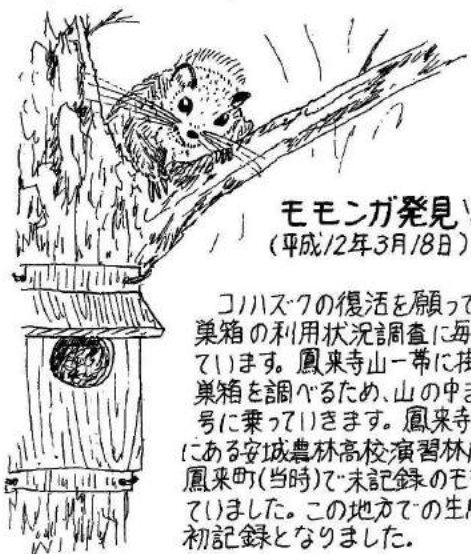 モモンガ発見
(平成12年3月18日)
コノハズクの復活を願って
巣箱の利用状況調査に毎
ています。鳳来寺山一帯に掛
巣箱を調べるため、山の中ま
号に乗っていきます。鳳来寺
にある安城農林高校演習林
鳳来町(当時)で未記録のモモ
ていました。この地方での生
初記録となりました。